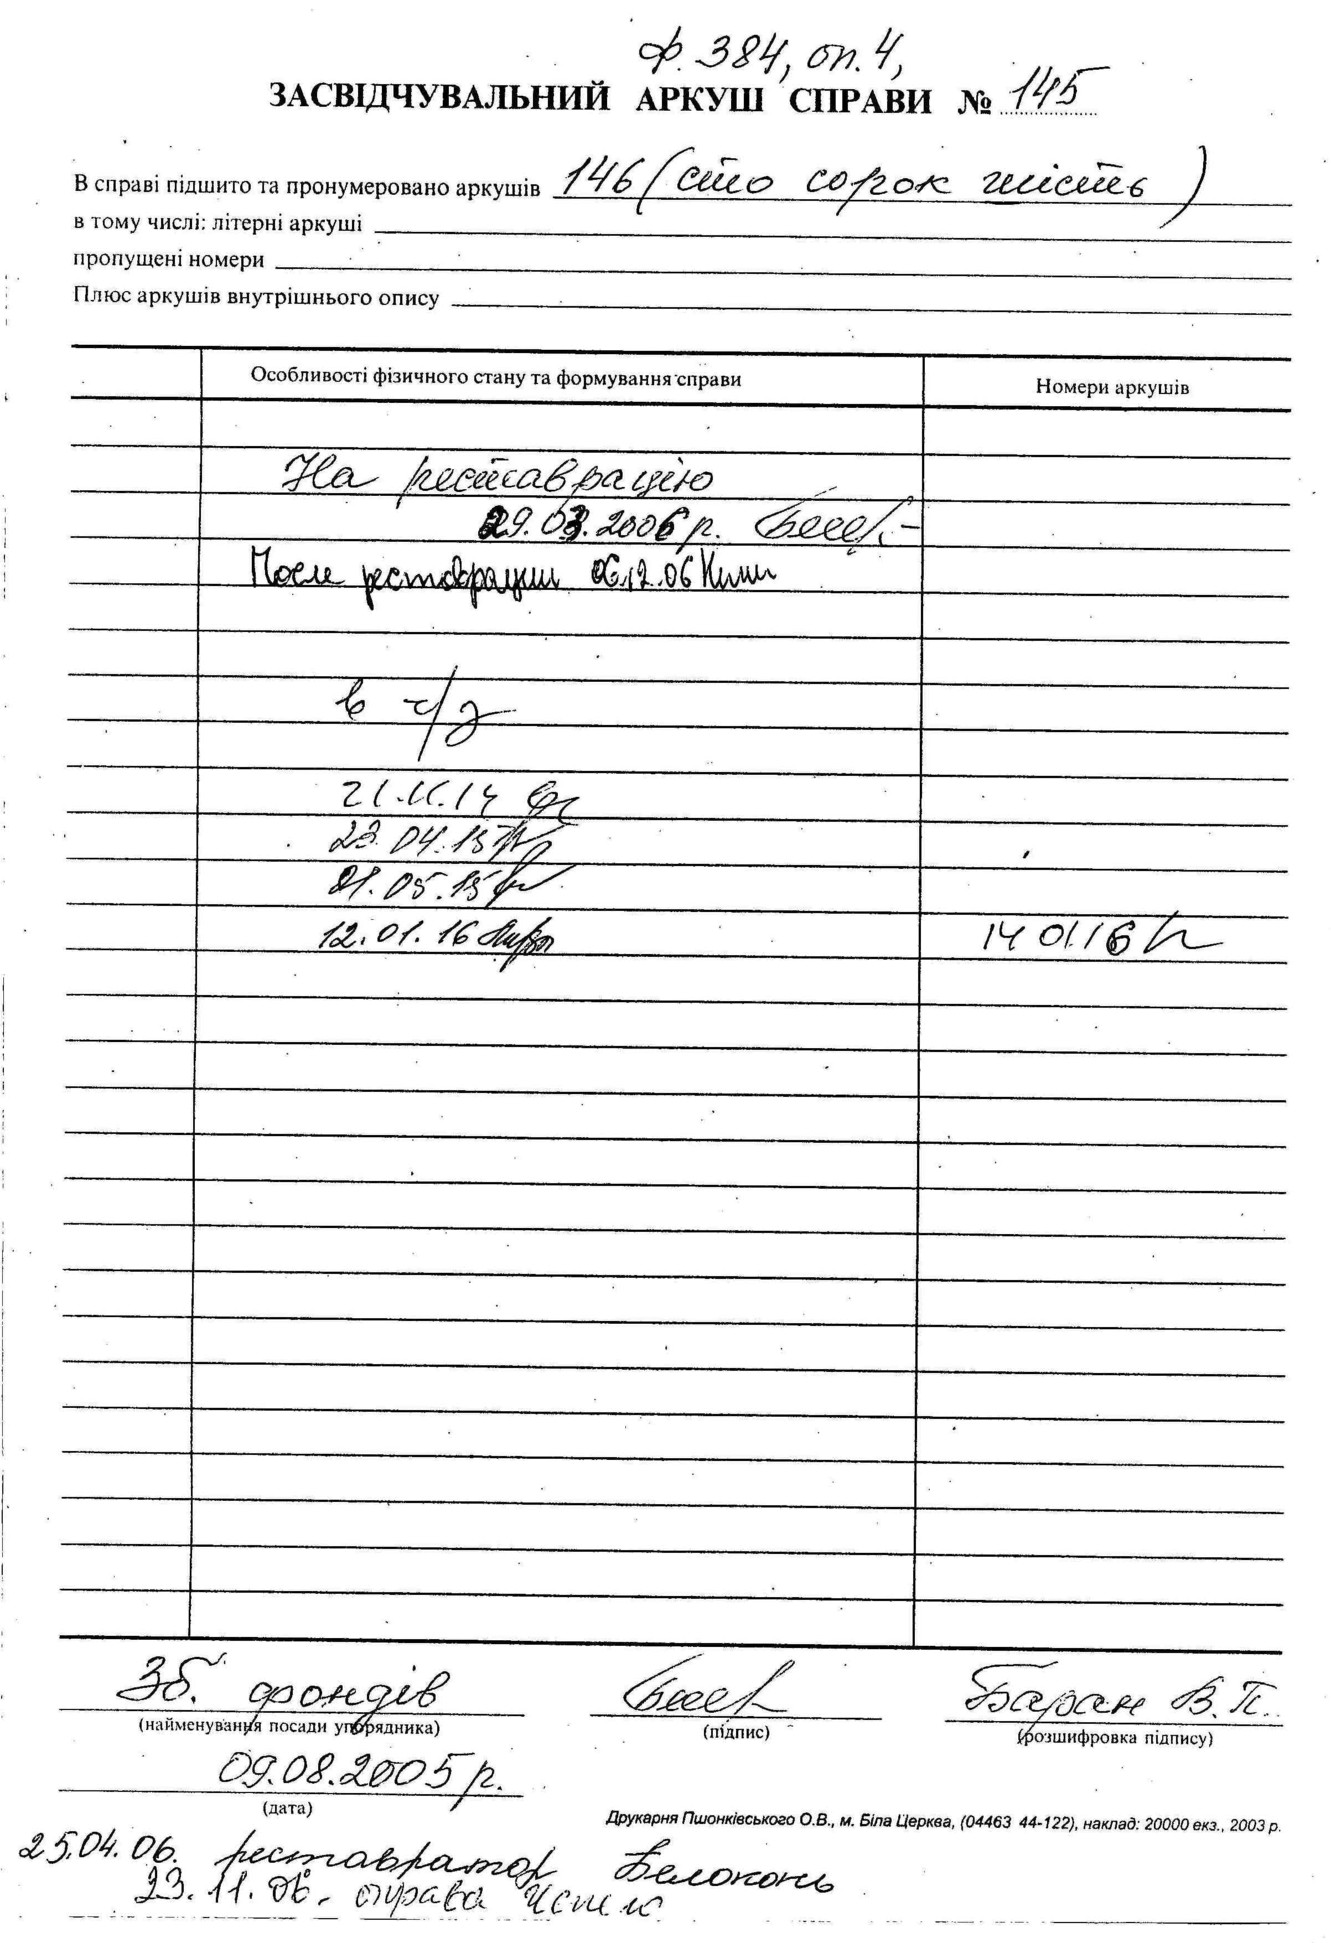 ф. 384, оп. 4,
ЗАСВІДЧУВАЛЬНИЙ АРКУШ СПРАВИ № 145
В справі підшито та пронумеровано аркушів 146 (сто сорок шість)
в тому числі: літерні аркуші
пропущені номери
Плюс аркушів внутрішнього опису
Особливості фізичного стану та формування справи
Номери аркушів
На реставрацію
29.03.2006 р.
После реставрации 06.12.06
в ч/з
21.11.14
23.04.15
01.05.15
12.01.16
14 01 16
Зб. фондів
Баран В.П.
(найменування посади упорядника)
(підпис)
(розшифровка підпису)
09.08.2005 р.
(дата)
Друкарня Пшонківського О.В., м. Біла Церква, (04463 44-122), наклад: 20000 екз., 2003 р.
25.04.06. реставратор Белоконь
23.11.06. оправа